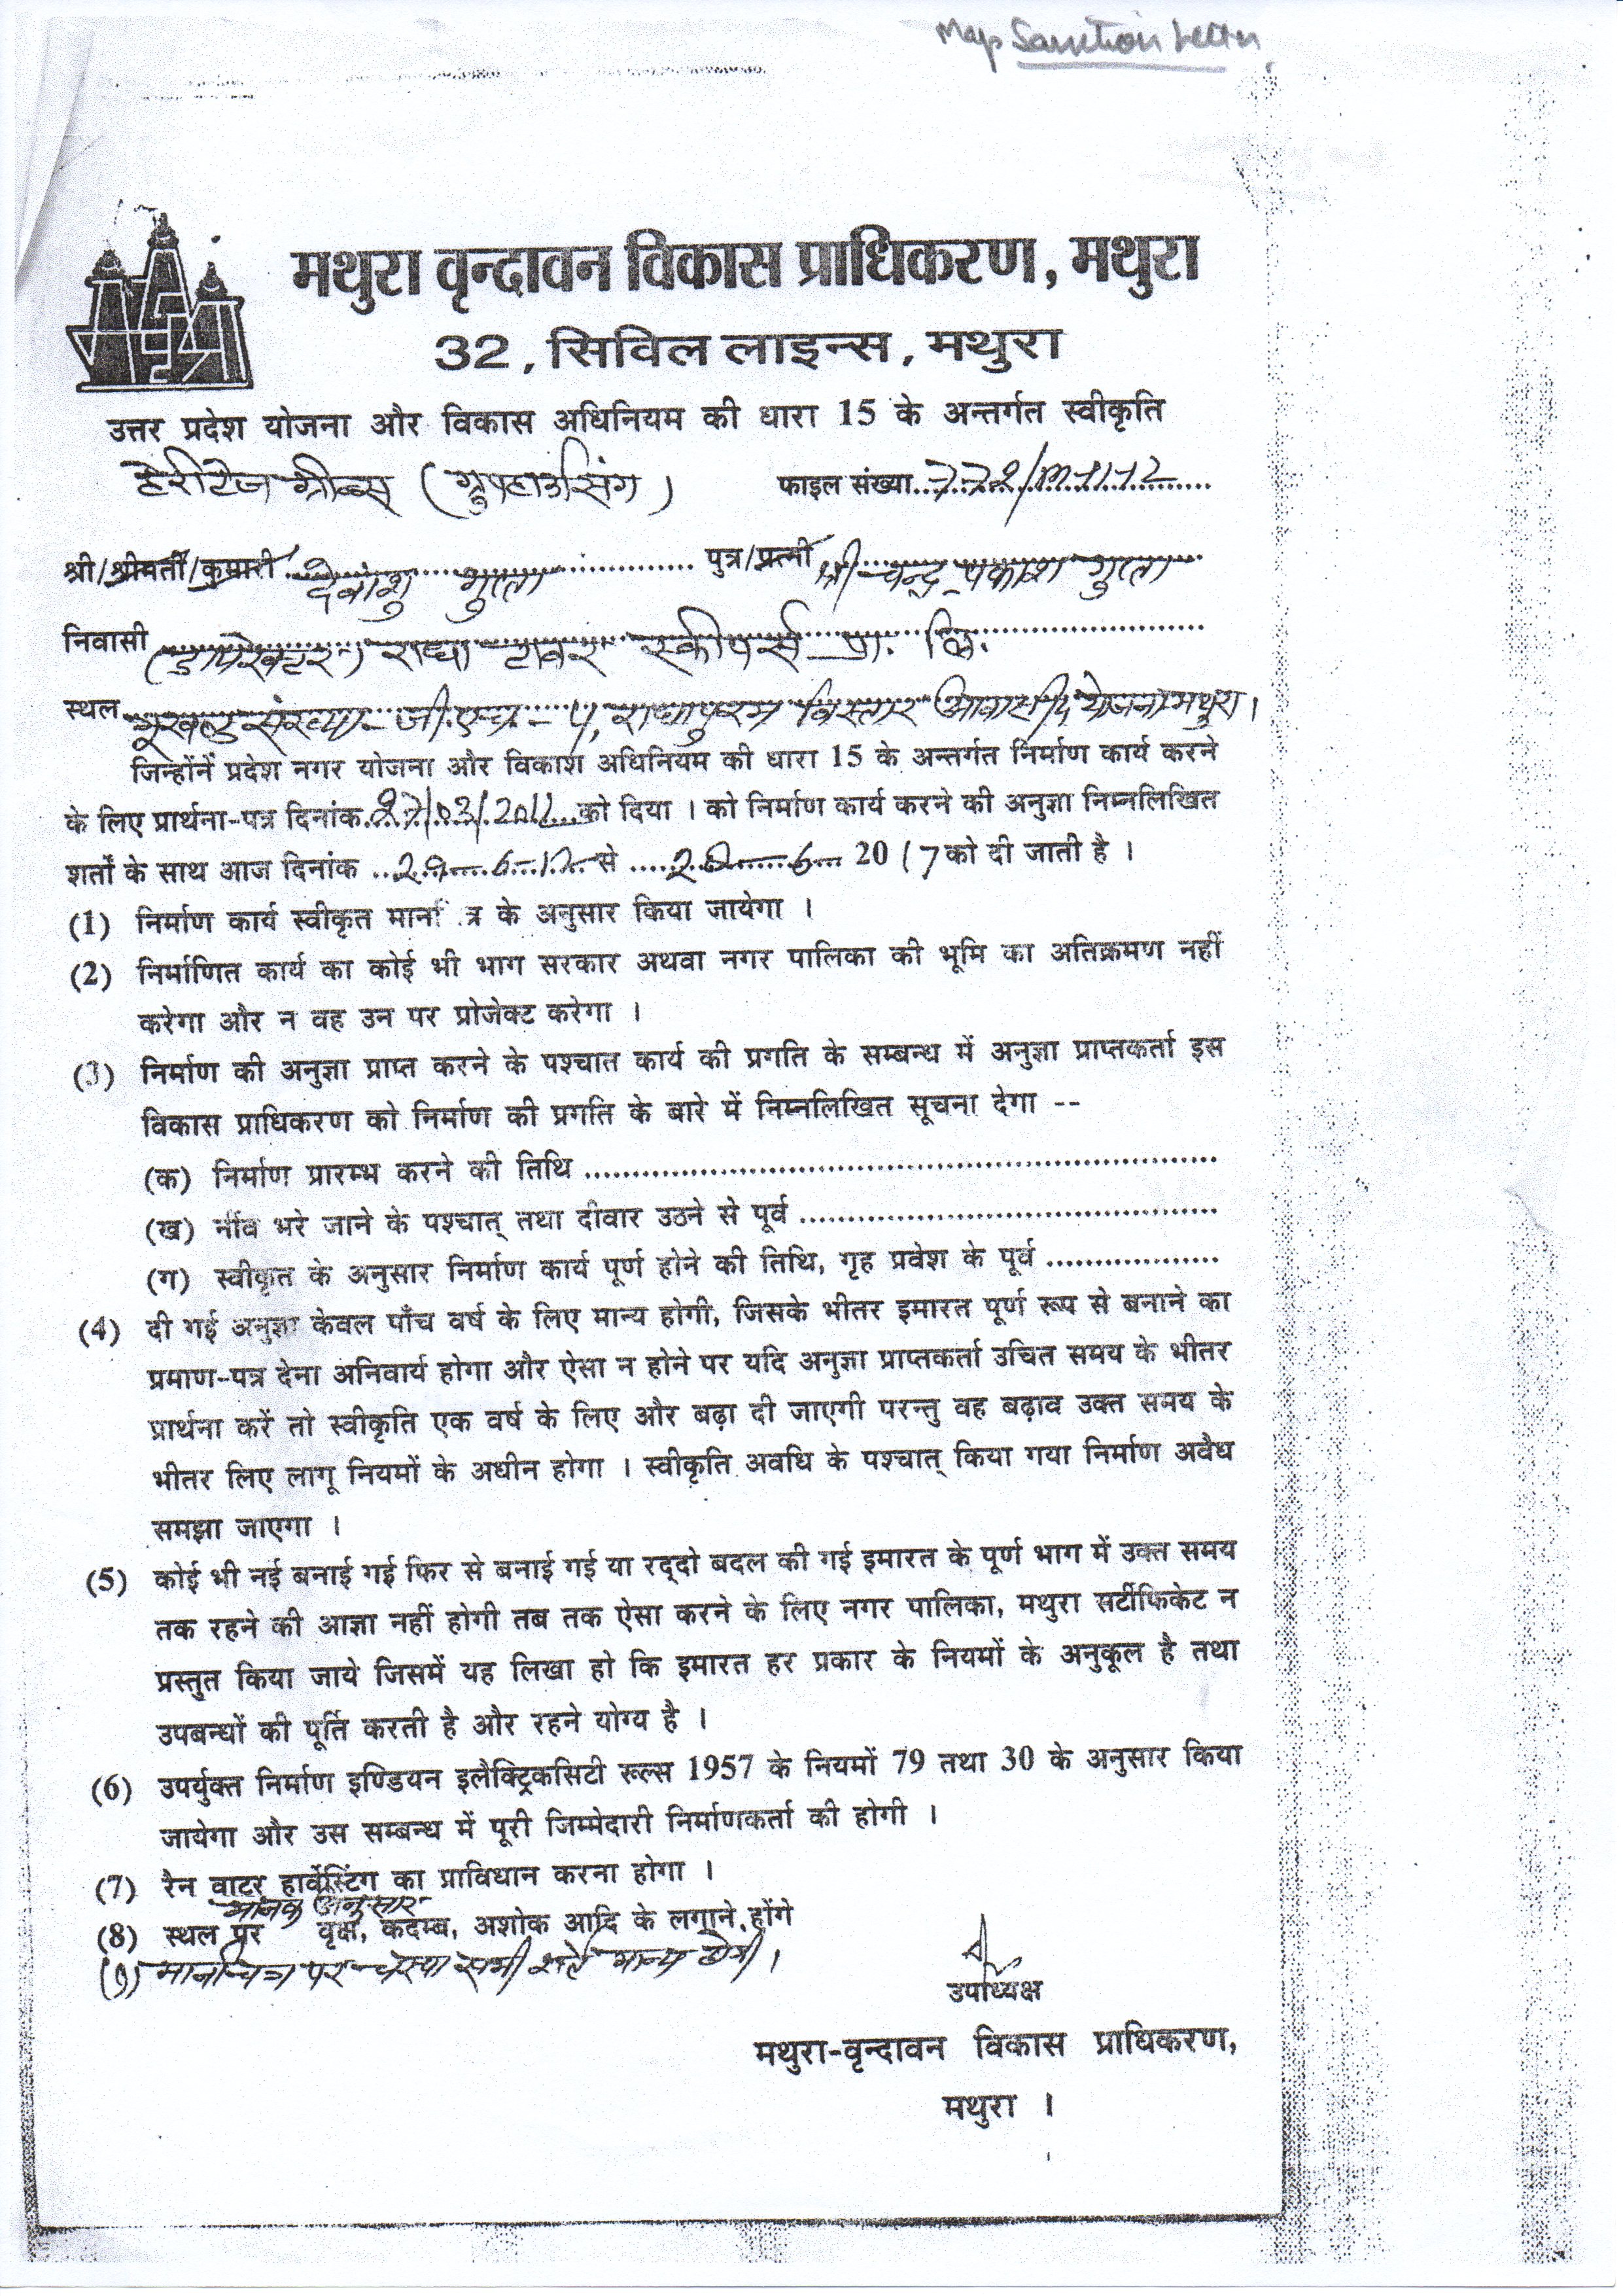 Map Sanction Letter
मथुरा वृन्दावन विकास प्राधिकरण, मथुरा
32, सिविल लाइन्स, मथुरा
उत्तर प्रदेश योजना और विकास अधिनियम की धारा 15 के अन्तर्गत स्वीकृति
हेरीटेज ग्रीन्स (ग्रुप हाउसिंग) फाइल संख्या
श्री/श्रीमती/कुमारी देवांशु गुप्ता पुत्र/पत्नी श्री चन्द्र प्रकाश गुप्ता
निवासी (डायरेक्टर) राधा टावर स्कीपर्स प्रा. लि.
स्थल भूखण्ड संख्या - जी.एच - 5, राधापुरम विस्तार आवासीय योजना मथुरा।
जिन्होंनें प्रदेश नगर योजना और विकाश अधिनियम की धारा 15 के अन्तर्गत निर्माण कार्य करने
के लिए प्रार्थना-पत्र दिनांक 27/03/2012 को दिया । को निर्माण कार्य करने की अनुज्ञा निम्नलिखित
शर्तों के साथ आज दिनांक 29-6-12 से 28-6- 2017 को दी जाती है ।
(1) निर्माण कार्य स्वीकृत मानचित्र के अनुसार किया जायेगा ।
(2) निर्माणित कार्य का कोई भी भाग सरकार अथवा नगर पालिका की भूमि का अतिक्रमण नहीं
करेगा और न वह उन पर प्रोजेक्ट करेगा ।
(3) निर्माण की अनुज्ञा प्राप्त करने के पश्चात कार्य की प्रगति के सम्बन्ध में अनुज्ञा प्राप्तकर्ता इस
विकास प्राधिकरण को निर्माण की प्रगति के बारे में निम्नलिखित सूचना देगा --
(क) निर्माण प्रारम्भ करने की तिथि ..........
(ख) नींव भरे जाने के पश्चात् तथा दीवार उठने से पूर्व ..........
(ग) स्वीकृत के अनुसार निर्माण कार्य पूर्ण होने की तिथि, गृह प्रवेश के पूर्व ..........
(4) दी गई अनुज्ञा केवल पाँच वर्ष के लिए मान्य होगी, जिसके भीतर इमारत पूर्ण रूप से बनाने का
प्रमाण-पत्र देना अनिवार्य होगा और ऐसा न होने पर यदि अनुज्ञा प्राप्तकर्ता उचित समय के भीतर
प्रार्थना करें तो स्वीकृति एक वर्ष के लिए और बढ़ा दी जाएगी परन्तु वह बढ़ाव उक्त समय के
भीतर लिए लागू नियमों के अधीन होगा । स्वीकृति अवधि के पश्चात् किया गया निर्माण अवैध
समझा जाएगा ।
(5) कोई भी नई बनाई गई फिर से बनाई गई या रद्दो बदल की गई इमारत के पूर्ण भाग में उक्त समय
तक रहने की आज्ञा नहीं होगी तब तक ऐसा करने के लिए नगर पालिका, मथुरा सर्टीफिकेट न
प्रस्तुत किया जाये जिसमें यह लिखा हो कि इमारत हर प्रकार के नियमों के अनुकूल है तथा
उपबन्धों की पूर्ति करती है और रहने योग्य है ।
(6) उपर्युक्त निर्माण इण्डियन इलैक्ट्रिकसिटी रूल्स 1957 के नियमों 79 तथा 30 के अनुसार किया
जायेगा और उस सम्बन्ध में पूरी जिम्मेदारी निर्माणकर्ता की होगी ।
(7) रैन वाटर हार्वेस्टिंग का प्राविधान करना होगा ।
मानक अनुसार
(8) स्थल पर वृक्ष, कदम्ब, अशोक आदि के लगाने होंगे
(9) मानचित्र पर चस्पा सभी शर्ते मान्य होगी।
उपाध्यक्ष
मथुरा-वृन्दावन विकास प्राधिकरण,
मथुरा ।